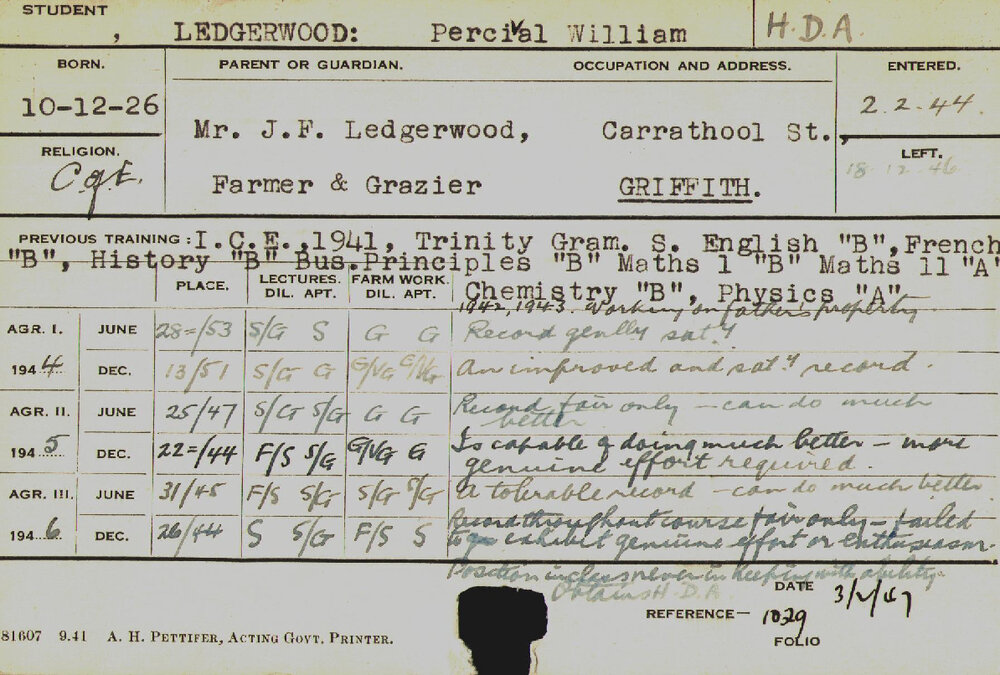 STUDENT
, LEDGERWOOD: Percival William H.D.A.
BORN. PARENT OR GUARDIAN. OCCUPATION AND ADDRESS. ENTERED.
10-12-26 2.2.44.
Mr. J.F. Ledgerwood, Carrathool St.,
RELIGION. LEFT.
C of E. 18.12.46
Farmer & Grazier GRIFFITH.
PREVIOUS TRAINING: I.C.E.,1941, Trinity Gram. S. English "B",French
"B", History "B" Bus.Principles "B" Maths 1 "B" Maths 11 "A"
PLACE. LECTURES. FARM WORK. Chemistry "B", Physics "A"
DIL. APT. DIL. APT.
1942, 1943. Working on fathers property.
AGR. I. JUNE 28=/53 S/G S G G Record genlly sat.y
194 4 DEC. 13/51 S/G G G/VG G/VG An improved and sat.y record.
AGR. II. JUNE 25/47 S/G S/G G G Record fair only — can do much
better
194 5 DEC. 22=/44 F/S S/G G/VG G Is capable of doing much better — more
genuine effort required.
AGR. III. JUNE 31/45 F/S S/G S/G S/G A tolerable record — can do much better
194 6 DEC. 26/44 S S/G F/S S Record throughout course fair only — failed
to exhibit genuine effort or enthusiasm.
Position in class never in keeping with ability.
Obtains H.D.A.
DATE 3/2/47
REFERENCE— 1029
FOLIO
81607 9.41 A. H. PETTIFER, ACTING GOVT. PRINTER.